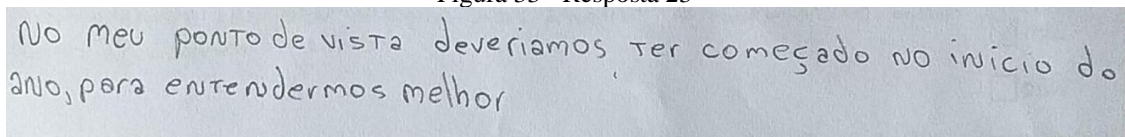 No meu ponto de vista deveriamos ter começado no inicio do
ano, para entendermos melhor